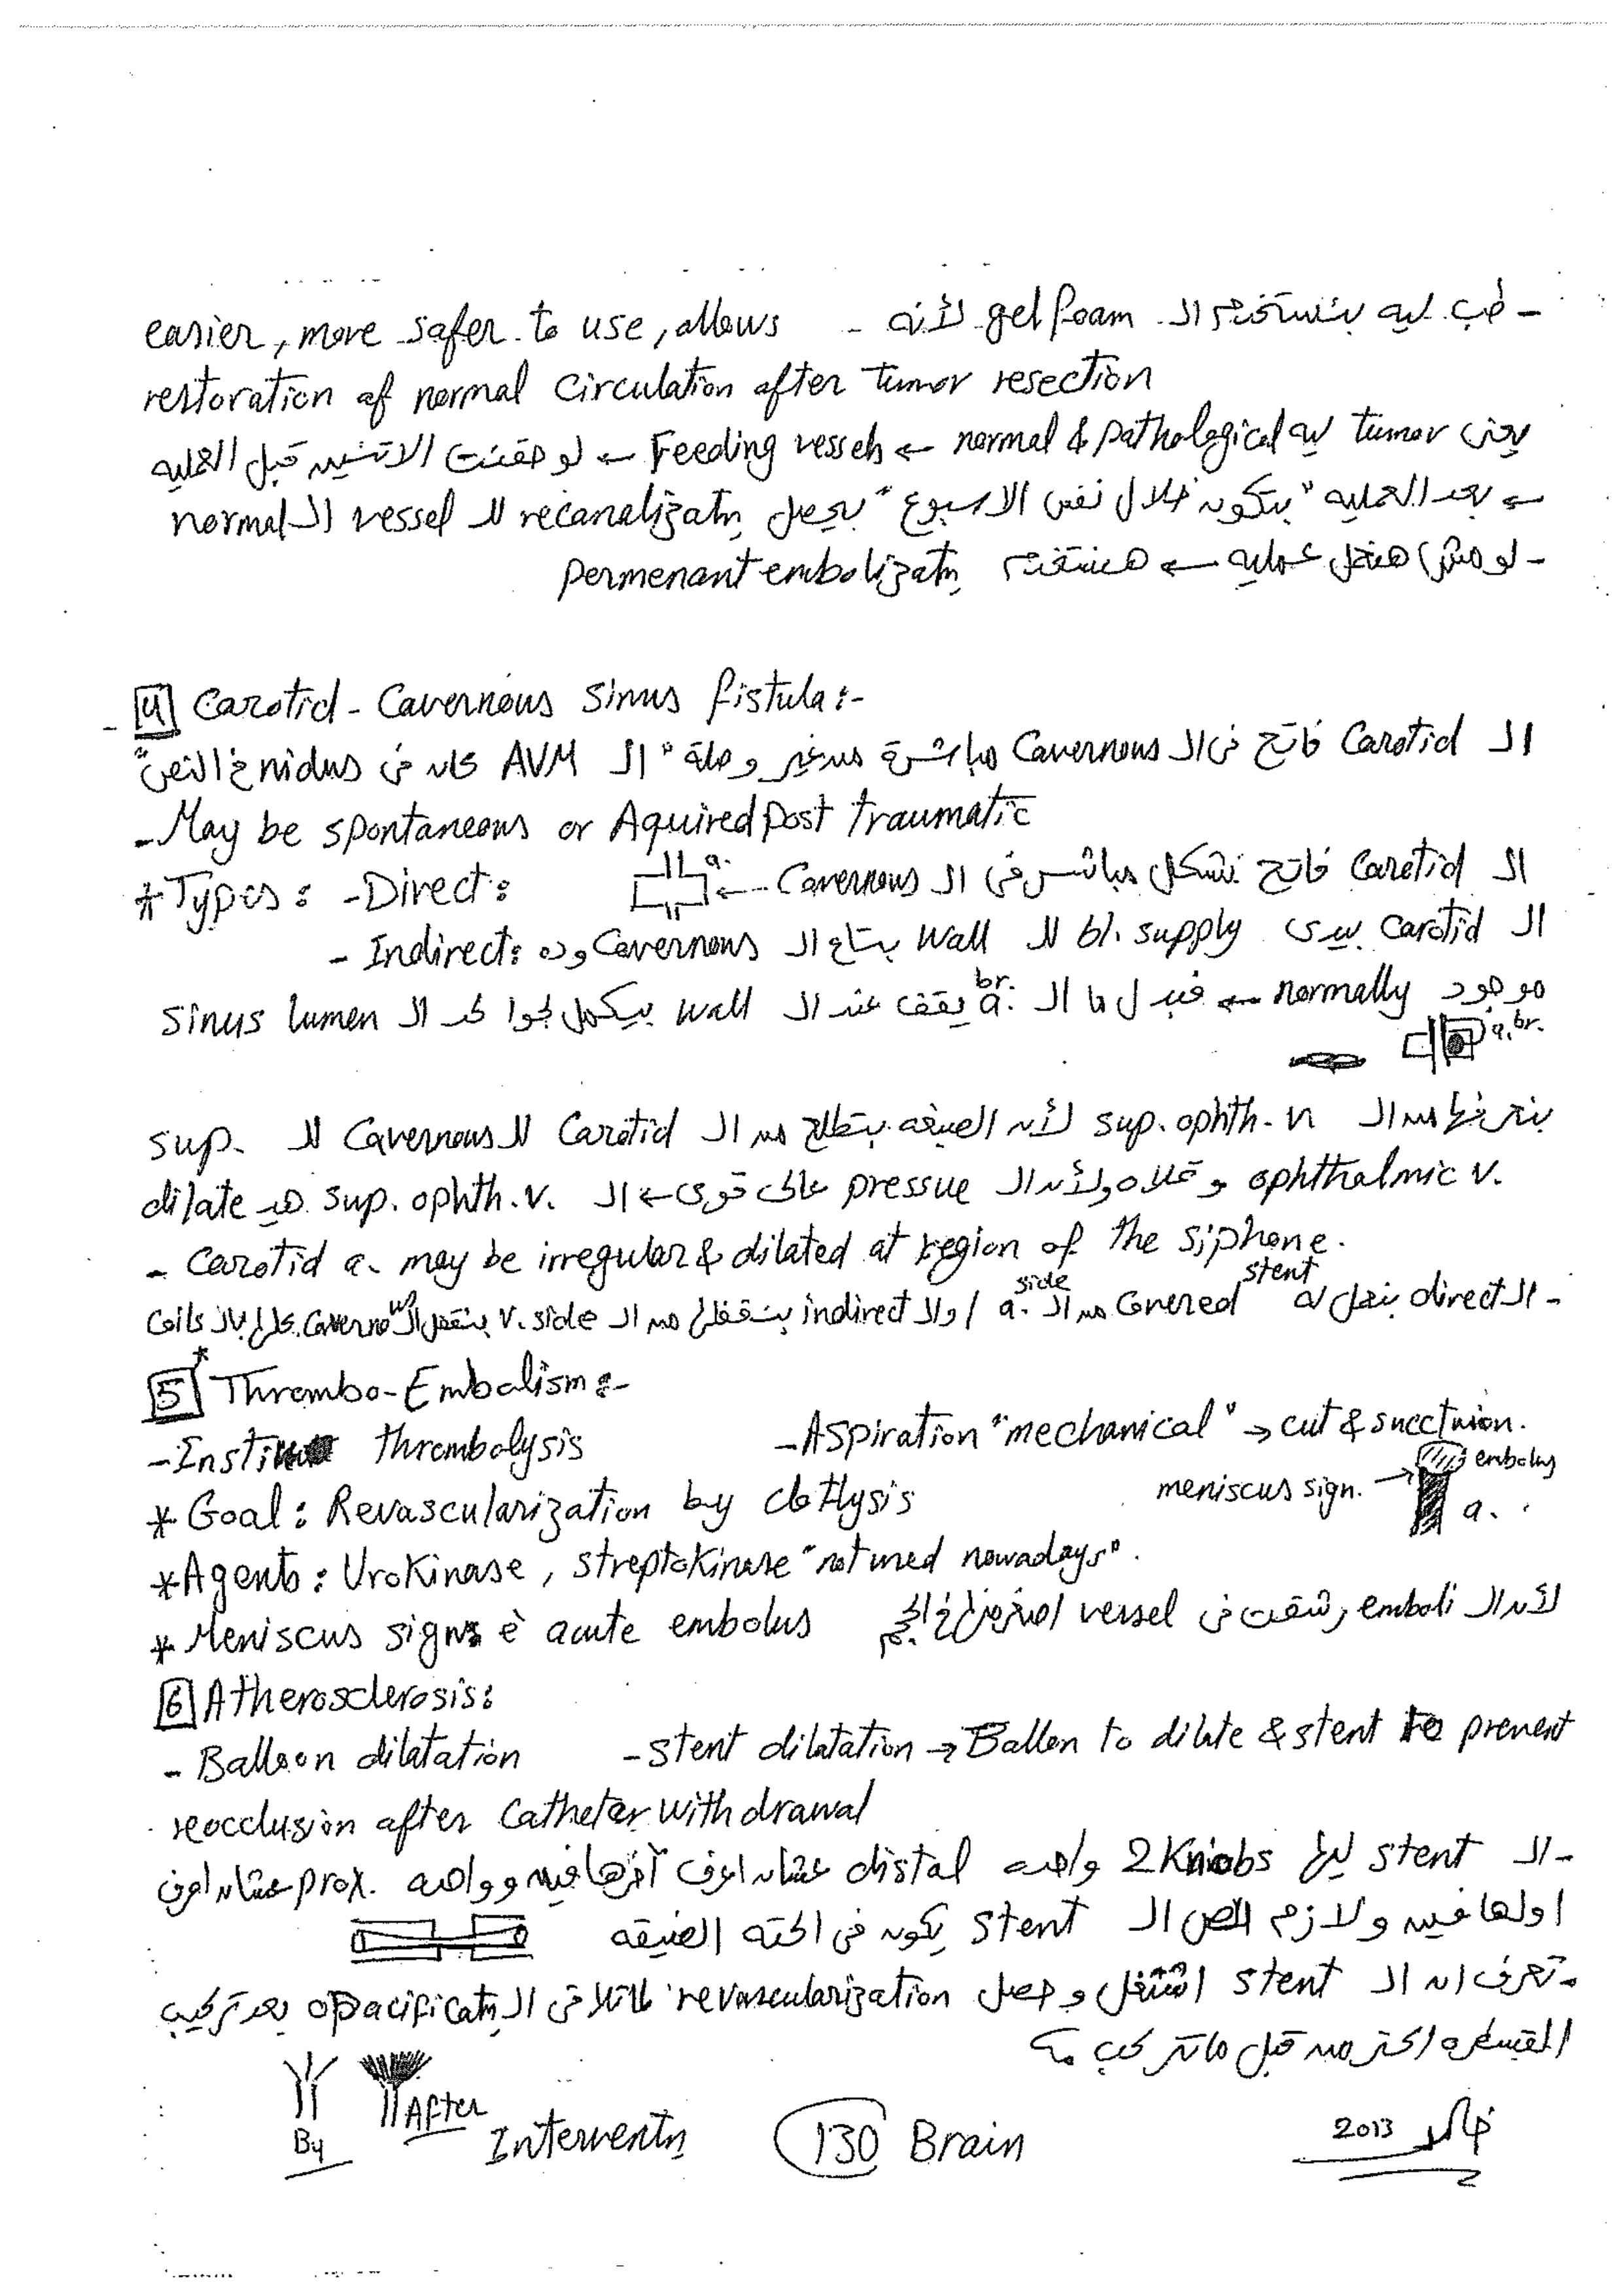 - طب ليه بنستخدم الـ gel foam لأنه easier, more safer to use, allows
restoration of normal circulation after tumor resection
يعنى tumor ليه normal & pathological ← Feeding vessels ← لو حقنت الاتنين قبل العمليه
← بعد العمليه "بتكون خلال نفس الاسبوع" بيحصل recanalizatn للـ vessel الـ normal
- لو مش هنعمل عمليه ← هنستخدم permenant embolizatn
4 Carotid - Cavernous Sinus fistula :-
الـ Carotid فاتح فى الـ Cavernous مباشرة من غير وصلة "الـ AVM كان فى nidus فى النص"
- May be spontaneous or Aquired post traumatic
* Types : - Direct : الـ Carotid فاتح بشكل مباشر فى الـ Cavernous ← a.
- Indirect : الـ Carotid بيدى bl. supply للـ wall بتاع الـ Cavernous وده
موجود normally ← فبدل ما الـ a. br. يقف عند الـ wall بيكمل لجوا لحد الـ sinus lumen
a. br.
الـ sup. ophth. v لأن الصبغه بتطلع من الـ Carotid للـ Cavernous للـ sup.
ophthalmic v. ولأن الـ pressue عالى قوى ← الـ sup. ophth. v. dilate
- Carotid a. may be irregular & dilated at region of the siphone.
- الـ direct بنعمل له Covered stent من الـ a. side / ولا indirect بنقفلها من الـ v. side بنقفل الـ Cavernous coils
5 * Thrombo-Embolism :-
- thrombolysis - Aspiration "mechanical" → cut & succtuion.
* Goal : Revascularization by clotlysis meniscus sign. → embolus a.
* Agents : Urokinase, streptokinase "not used nowadays".
* Meniscus sign è acute embolus لأن الـ emboli زنقت فى vessel اصغر منها فى الحجم
6 Atherosclerosis :
- Balloon dilatation - stent dilatation → Ballon to dilate & stent to prevent
reocclusion after Catheter withdrawal
- الـ stent ليها 2 Knobs واحده distal عشان اعرف آخرها فين وواحده prox. عشان اعرف
اولها فين ولازم الـ stent يكون فى الحته الضيقه
- تعرف ان الـ stent اشتغل وحصل revascularization لما تلاقى الـ opacificatn بعد تركيب
القسطره اكتر من قبل ما تتركب
By After
Interventn 130 Brain خالد 2013